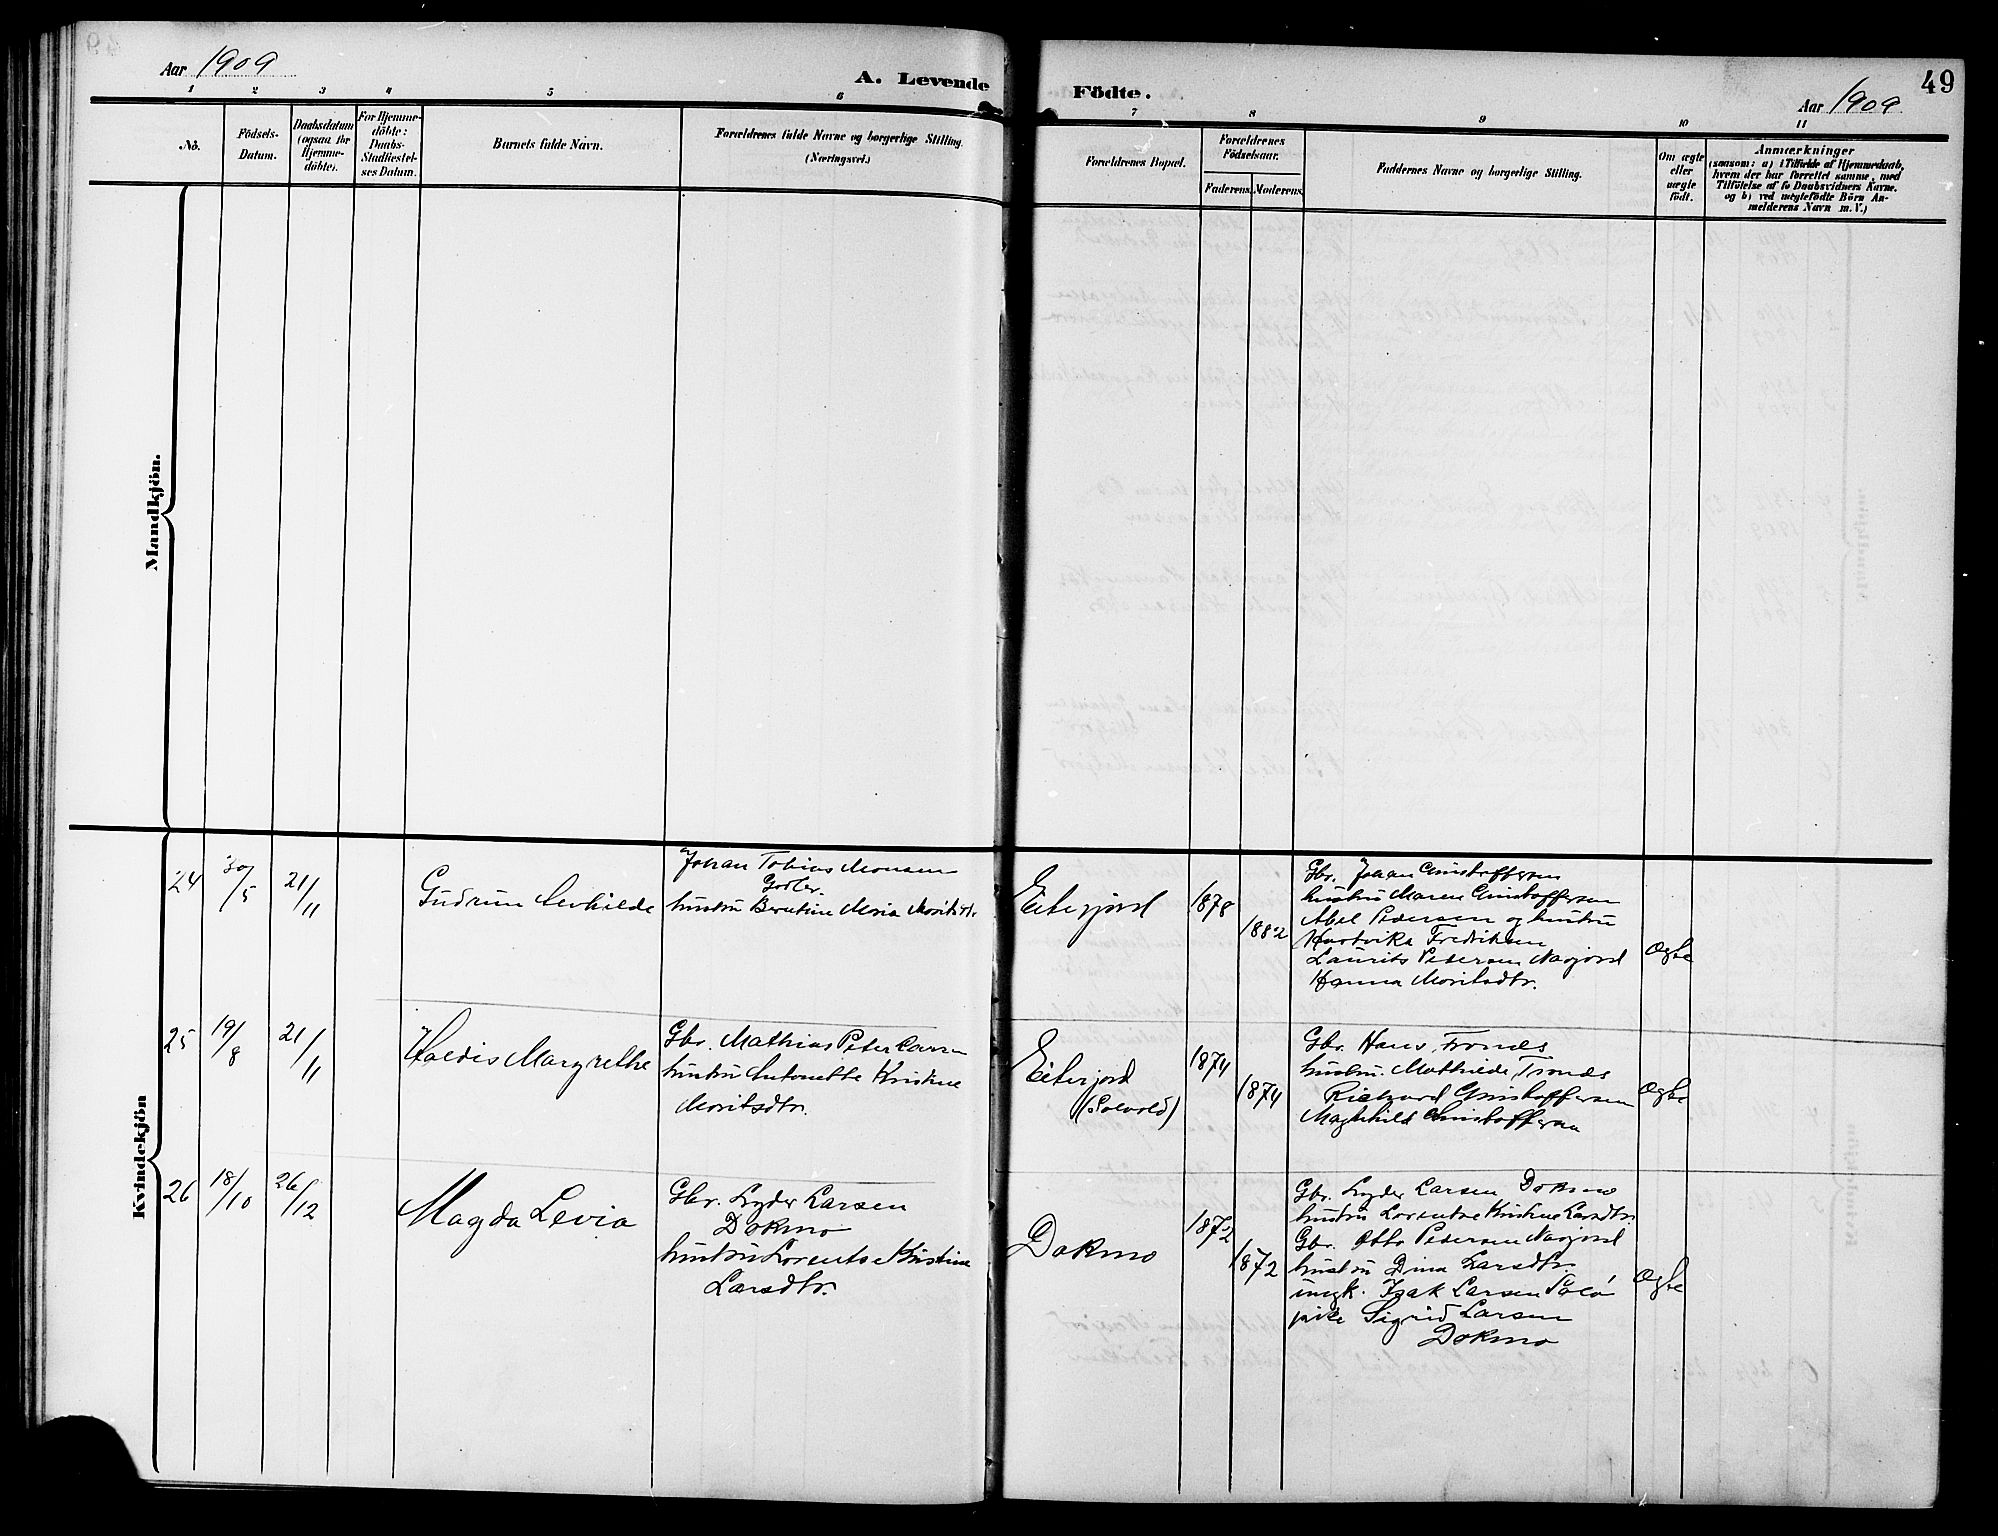 Aar 1909
A. Levende
Födte.
49
Aar 1909
1 2 3 4 5 6 7 8 9 10 11
No.
Födsels-
Datum.
Daabsdatum
(ogsaa for
Hjemme-
döbte).
For Hjemme-
döbte:
Daabs-
Stadfæstel-
ses Datum.
Barnets fulde Navn.
Forældrenes fulde Navne og borgerlige Stilling.
(Næringsvei.)
Forældrenes Bopæl.
Forældrenes
Födselsaar.
Faderens.
Moderens.
Faddernes Navne og borgerlige Stilling.
Om ægte
eller
uægte
födt.
Anmærkninger
(saasom: a) i Tilfælde af Hjemmedaab,
hvem der har forrettet samme, med
Tilföielse af to Daabsvidners Navne.
og b) ved uægtefödte Börn An-
melderens Navn m. V.)
Mandkjön.
Kvindekjön
24
30/5
21/11
Gudrun
Johan Tobias Monsen
hustru Berntine Maria Moritsdtr.
Eiterjord
1878
1882
Gbr. Johan Christoffersen
hustru Maren Christoffersen
Abel Pedersen og hustru
Hartvika Fredriksen
Laurits Pedersen Navjord
Hanna Moritsdtr.
Ægte
25
19/8
21/11
Haldis Margrethe
Gbr. Mathias Peter Larsen
hustru Antonette Kristine
Moritsdtr.
Eiterjord
(Solvold)
1874
1874
Gbr. Hans Trondes
hustru. Mathilde Trondes
Richard Christoffersen
Maghild Christoffersen
Ægte
26
18/10
26/12
Magda Levia
Gbr. Lyder Larsen
Dokmo
hustru Lorentse Kristine
Larsdtr.
Dokmo
1872
1872
Gbr. Lyder Larsen Dokmo
hustru Lorentse Kristine Larsdtr.
Gbr. Otto Pedersen Navjord
hustru Dina Larsdtr.
ungk. Isak Larsen
pike Sigrid Larsen
Dokmo
Ægte